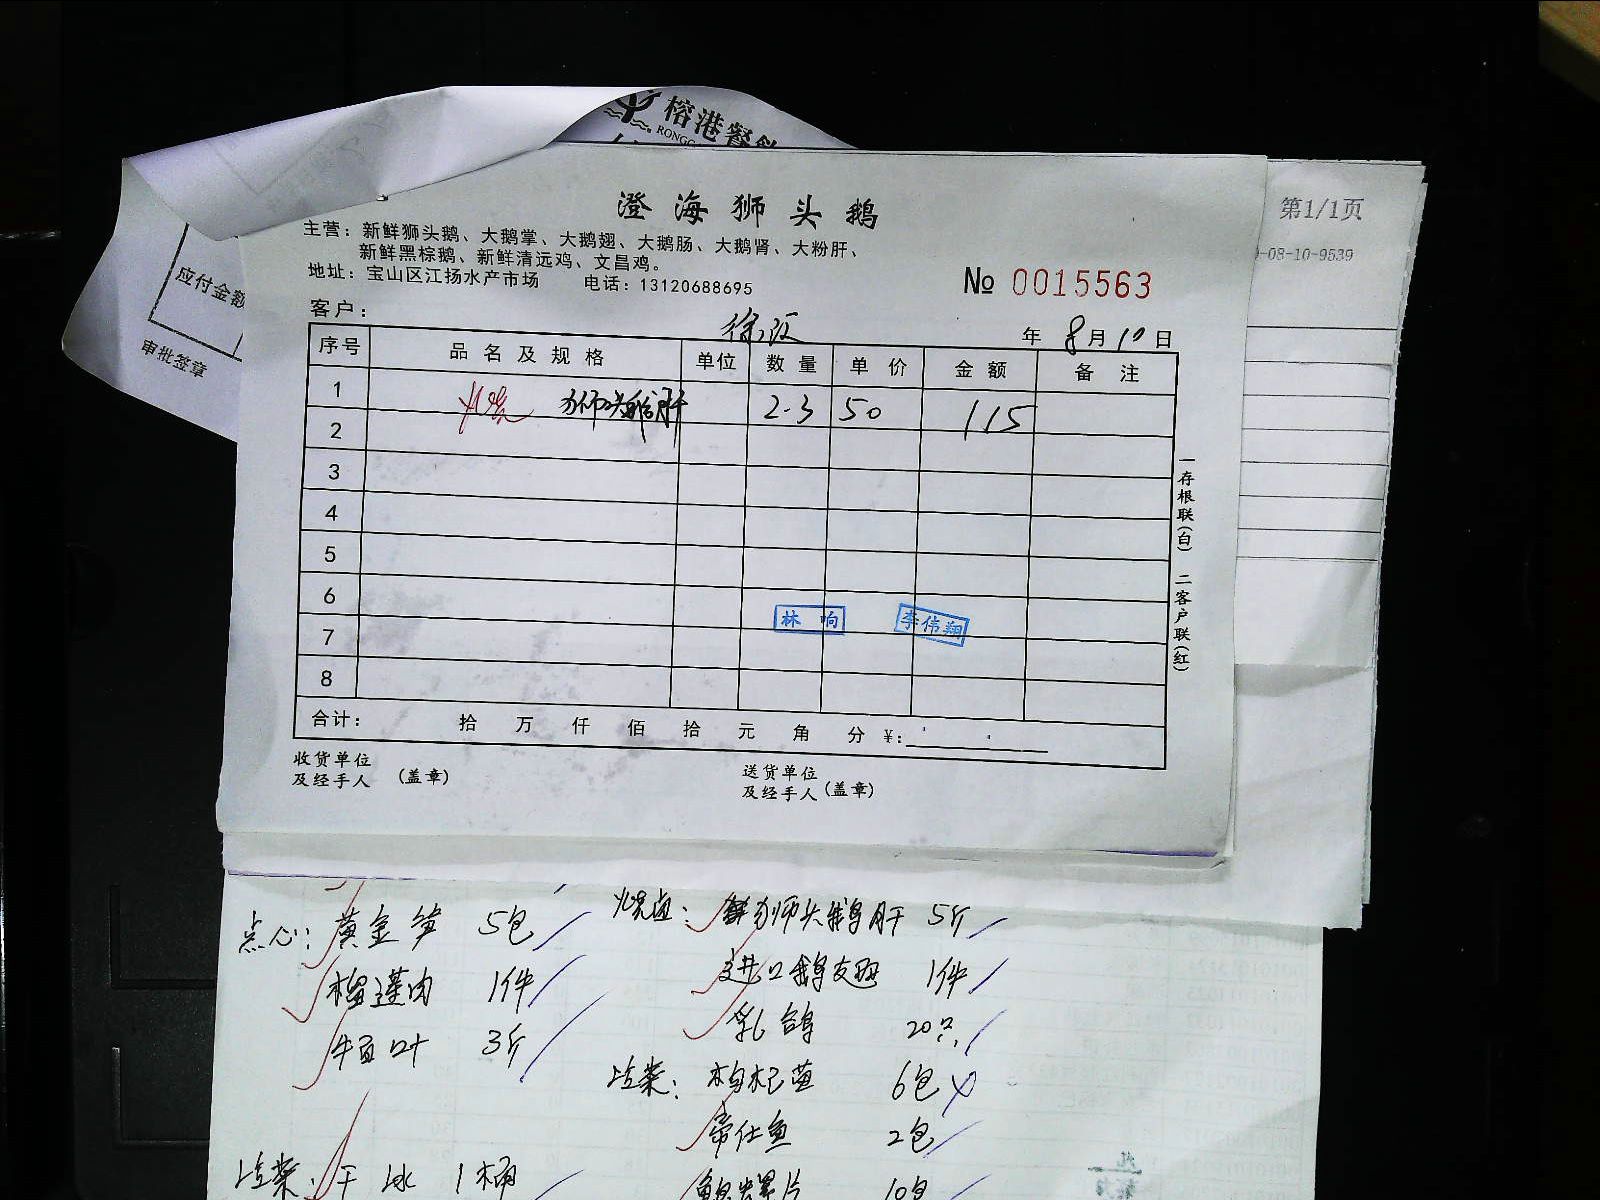 榕港餐飲
RONGG
第1/1页
-08-10-9539
应付金额
审批签章
澄海狮头鹅
主营：新鲜狮头鹅、大鹅掌、大鹅翅、大鹅肠、大鹅肾、大粉肝、
新鲜黑棕鹅、新鲜清远鸡、文昌鸡。
地址：宝山区江扬水产市场 电话：13120688695
№ 0015563
客户： 徐汇 年 8月10日
序号 品名及规格 单位 数量 单价 金额 备注
1 烧 狮头鹅肝 2.3 50 115
2
3
4
5
6
林响 李伟翔
7
8
合计： 拾 万 仟 佰 拾 元 角 分 ¥:
收货单位
及经手人 (盖章)
送货单位
及经手人 (盖章)
一存根联(白) 二客户联(红)
点心： 黄金笋 5包
榴莲肉 1件
牛百叶 3斤
烧卤： 鲜狮头鹅肝 5斤
进口鹅翅 1件
乳鸽 20只
上杂： 枸杞苗 6包
帝仕鱼 2包
片 10包
上杂： 干冰 1桶